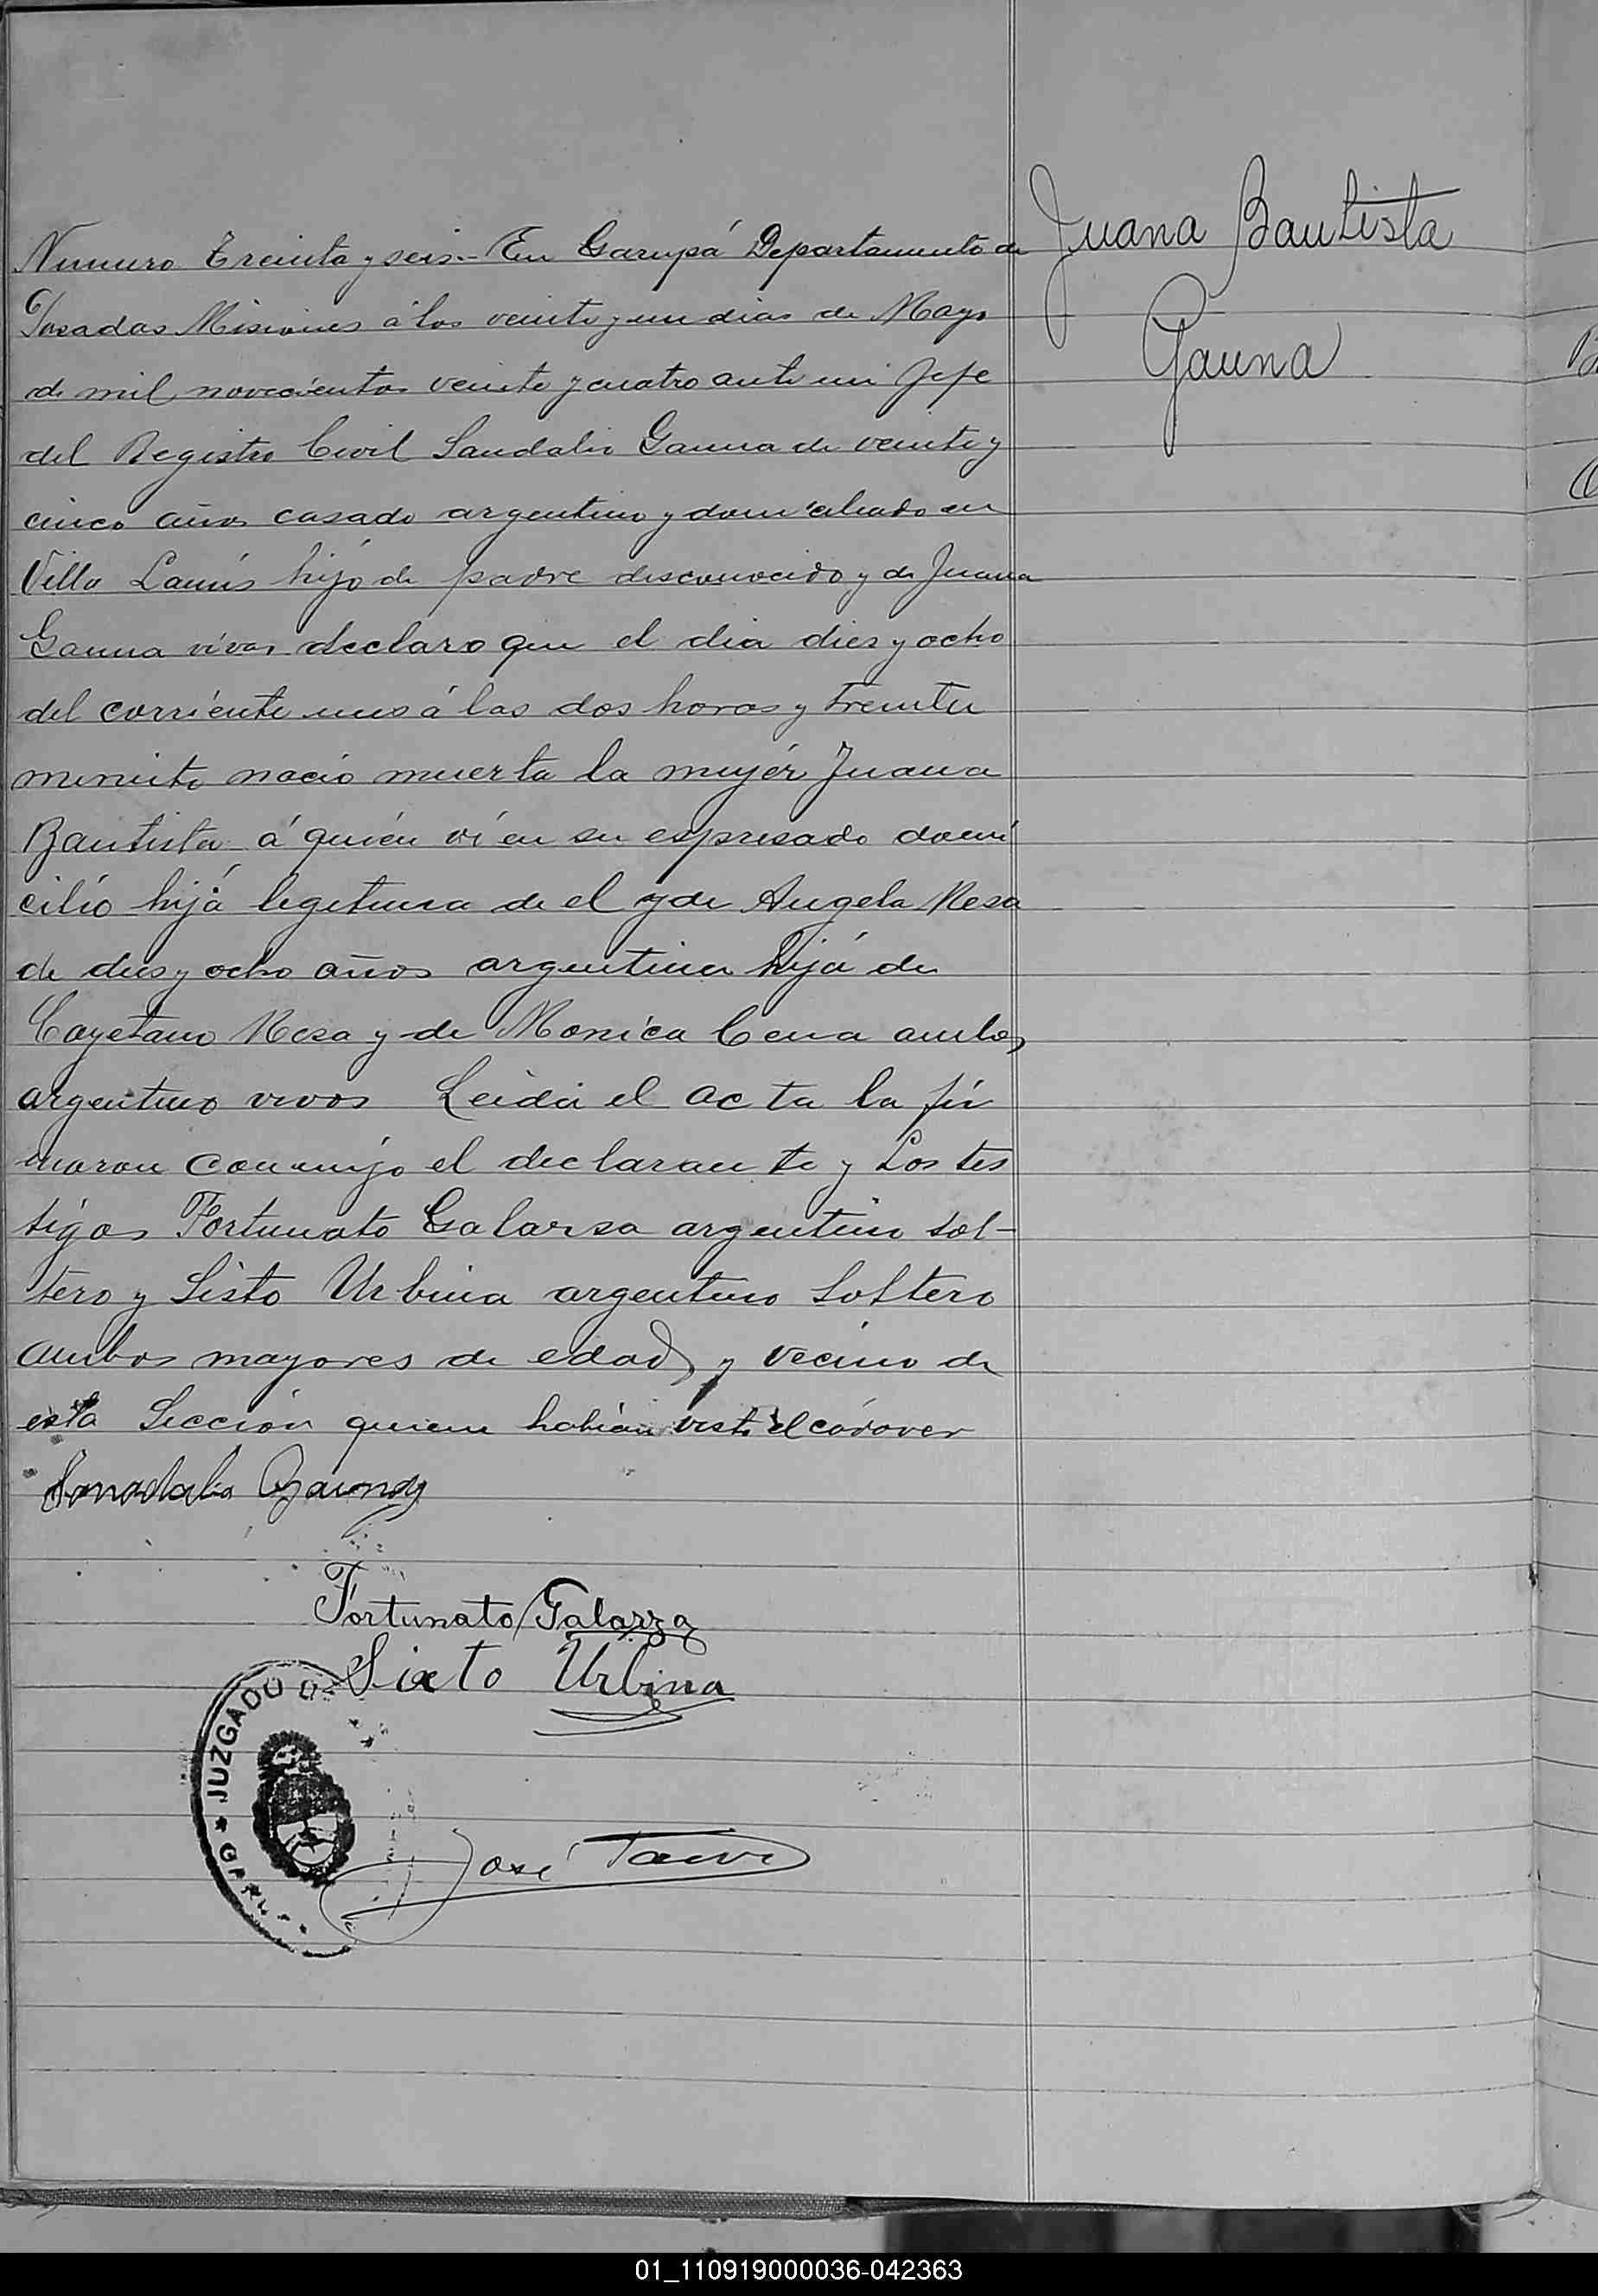 Juana Bautista
Gauna
Numero Treinta y seis.- En Garupá Departamento de
Posadas Misiones á los veinte y un dias de Mayo
de mil novecientos veinte y cuatro ante mi Jefe
del Registro Civil Sandalio Gauna de veinte y
cinco años casado argentino y domiciliado en
Villa Lanús hijo de padre desconocido y de Juana
Gauna viva, declaro que el dia dies y ocho
del corriente mes á las dos horas y treinta
minuto nacio muerta la mujér Juana
Bautista á quién ví en su espresado domi
cilio hijá legitima de el y de Angela Mesa
de dies y ocho años argentina hijá de
Cayetano Mesa y de Monica Cena ambos
argentino vivos Leida el acta la fir
maron conmigo el declarante y Los tes
tigos Fortunato Galarsa argentino sol-
tero y Sisto Urbina argentino Soltero
ambos mayores de edad y vecino de
esta Sección quiene habian visto el cádaver
Sandalio Gauna
Fortunato Galarza
Sixto Urbina
JUZGADO D
GARU
José
01_110919000036-042363